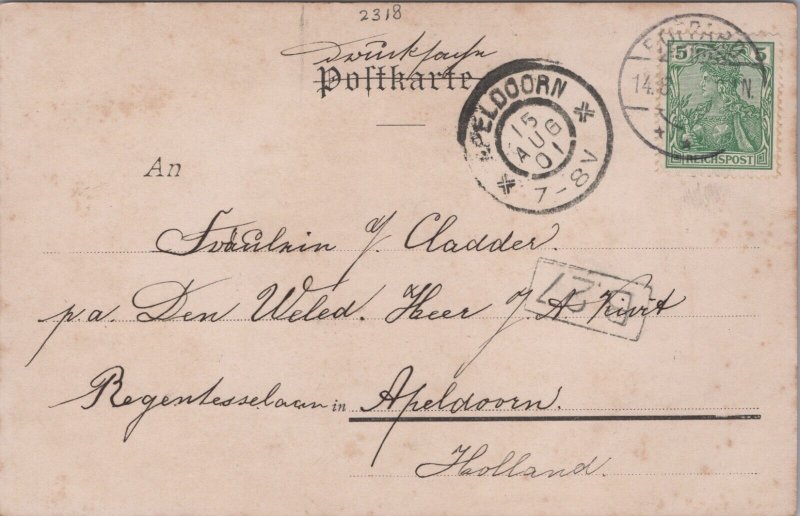 2318
Drucksache
Postkarte
APELDOORN
15
AUG
01
7-8V
14.8
N.
5 5
REICHSPOST
An
Fräulein J. Cladder.
p.a. Den Weled. Heer J. A. Kivit
Regentesselaan in Apeldoorn.
Holland.